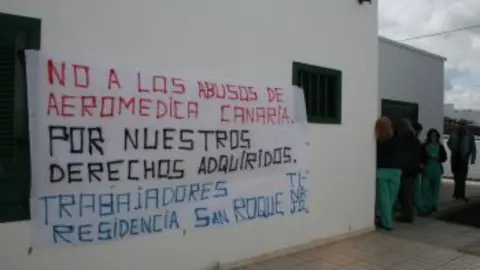 NO A LOS ABUSOS DE
AEROMEDICA CANARIA.
POR NUESTROS
DERECHOS ADQUIRIDOS.
TRABAJADORES
RESIDENCIA, SAN ROQUE